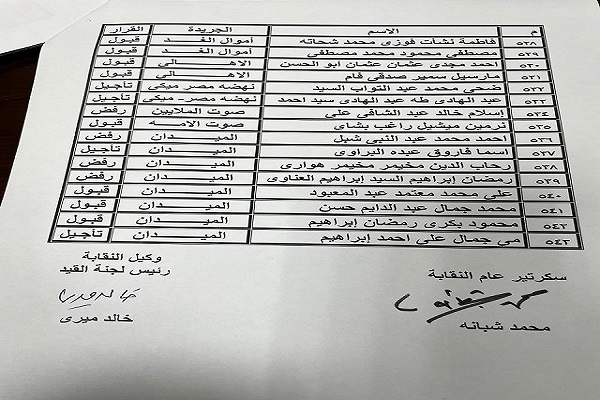 م الاسم الجريدة القرار
٥٢٨ فاطمة نشأت فوزى محمد شحاته أموال الغد قبول
٥٢٩ مصطفى محمود محمد مصطفى أموال الغد قبول
٥٣٠ احمد مجدى عثمان عثمان ابو الحسن الاهالى قبول
٥٣١ مارسيل سمير صدقى قام الاهالى قبول
٥٣٢ ضحى محمد عبد التواب السيد نهضه مصر ميكى تأجيل
٥٣٣ عبد الهادى طه عبد الهادى سيد احمد نهضه مصر- ميكى تأجيل
٥٣٤ إسلام خالد عبد الشافي على صوت الملايين رفض
٥٣٥ نرمين ميشيل راغب بشاى صوت الامه قبول
٥٣٦ احمد محمد عبد النبى شبل الميدان رفض
٥٣٧ اسما فاروق عبده البراوى الميدان تأجيل
٥٣٨ رحاب الدين مخيمر مخيمر هوارى الميدان رفض
٥٣٩ رمضان إبراهيم السيد إبراهيم العناوى الميدان رفض
٥٤٠ على محمد معتمد عبد المعبود الميدان قبول
٥٤١ محمد جمال عبد الدايم حسن الميدان قبول
٥٤٢ محمود بكرى رمضان إبراهيم الميدان قبول
٥٤٣ مى جمال على احمد إبراهيم الميدان تأجيل
وكيل النقابة
سكرتير عام النقابة رئيس لجنة القيد
محمد شبانه خالد ميرى